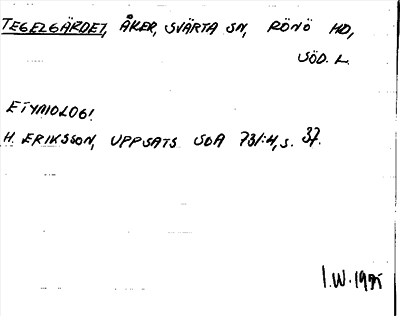 TEGELGÄRDET, ÅKER, SVÄRTA SN, RÖNÖ HD,
SÖD. L.
ETYMOLOGI
H. ERIKSSON, UPPSATS SOA 731:4, S. 37.
I.W. 1975